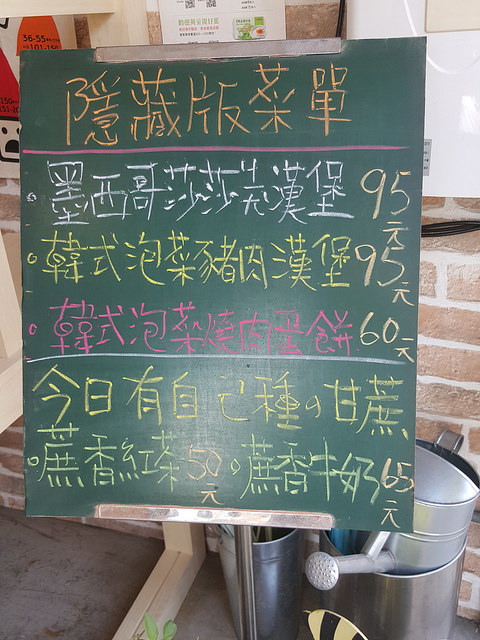 36-55
101-150
隱藏版菜單
墨西哥莎莎羌漢堡 95元
韓式泡菜豬肉漢堡 95元
韓式泡菜燒肉蛋餅 60元
今日有自己種の甘蔗、
蔗香紅茶 50元 蔗香牛奶 65元